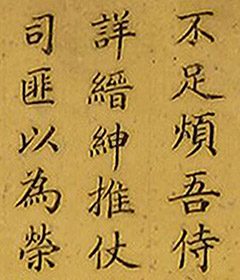 不足煩吾侍
詳縉紳推仗
司匪以為榮